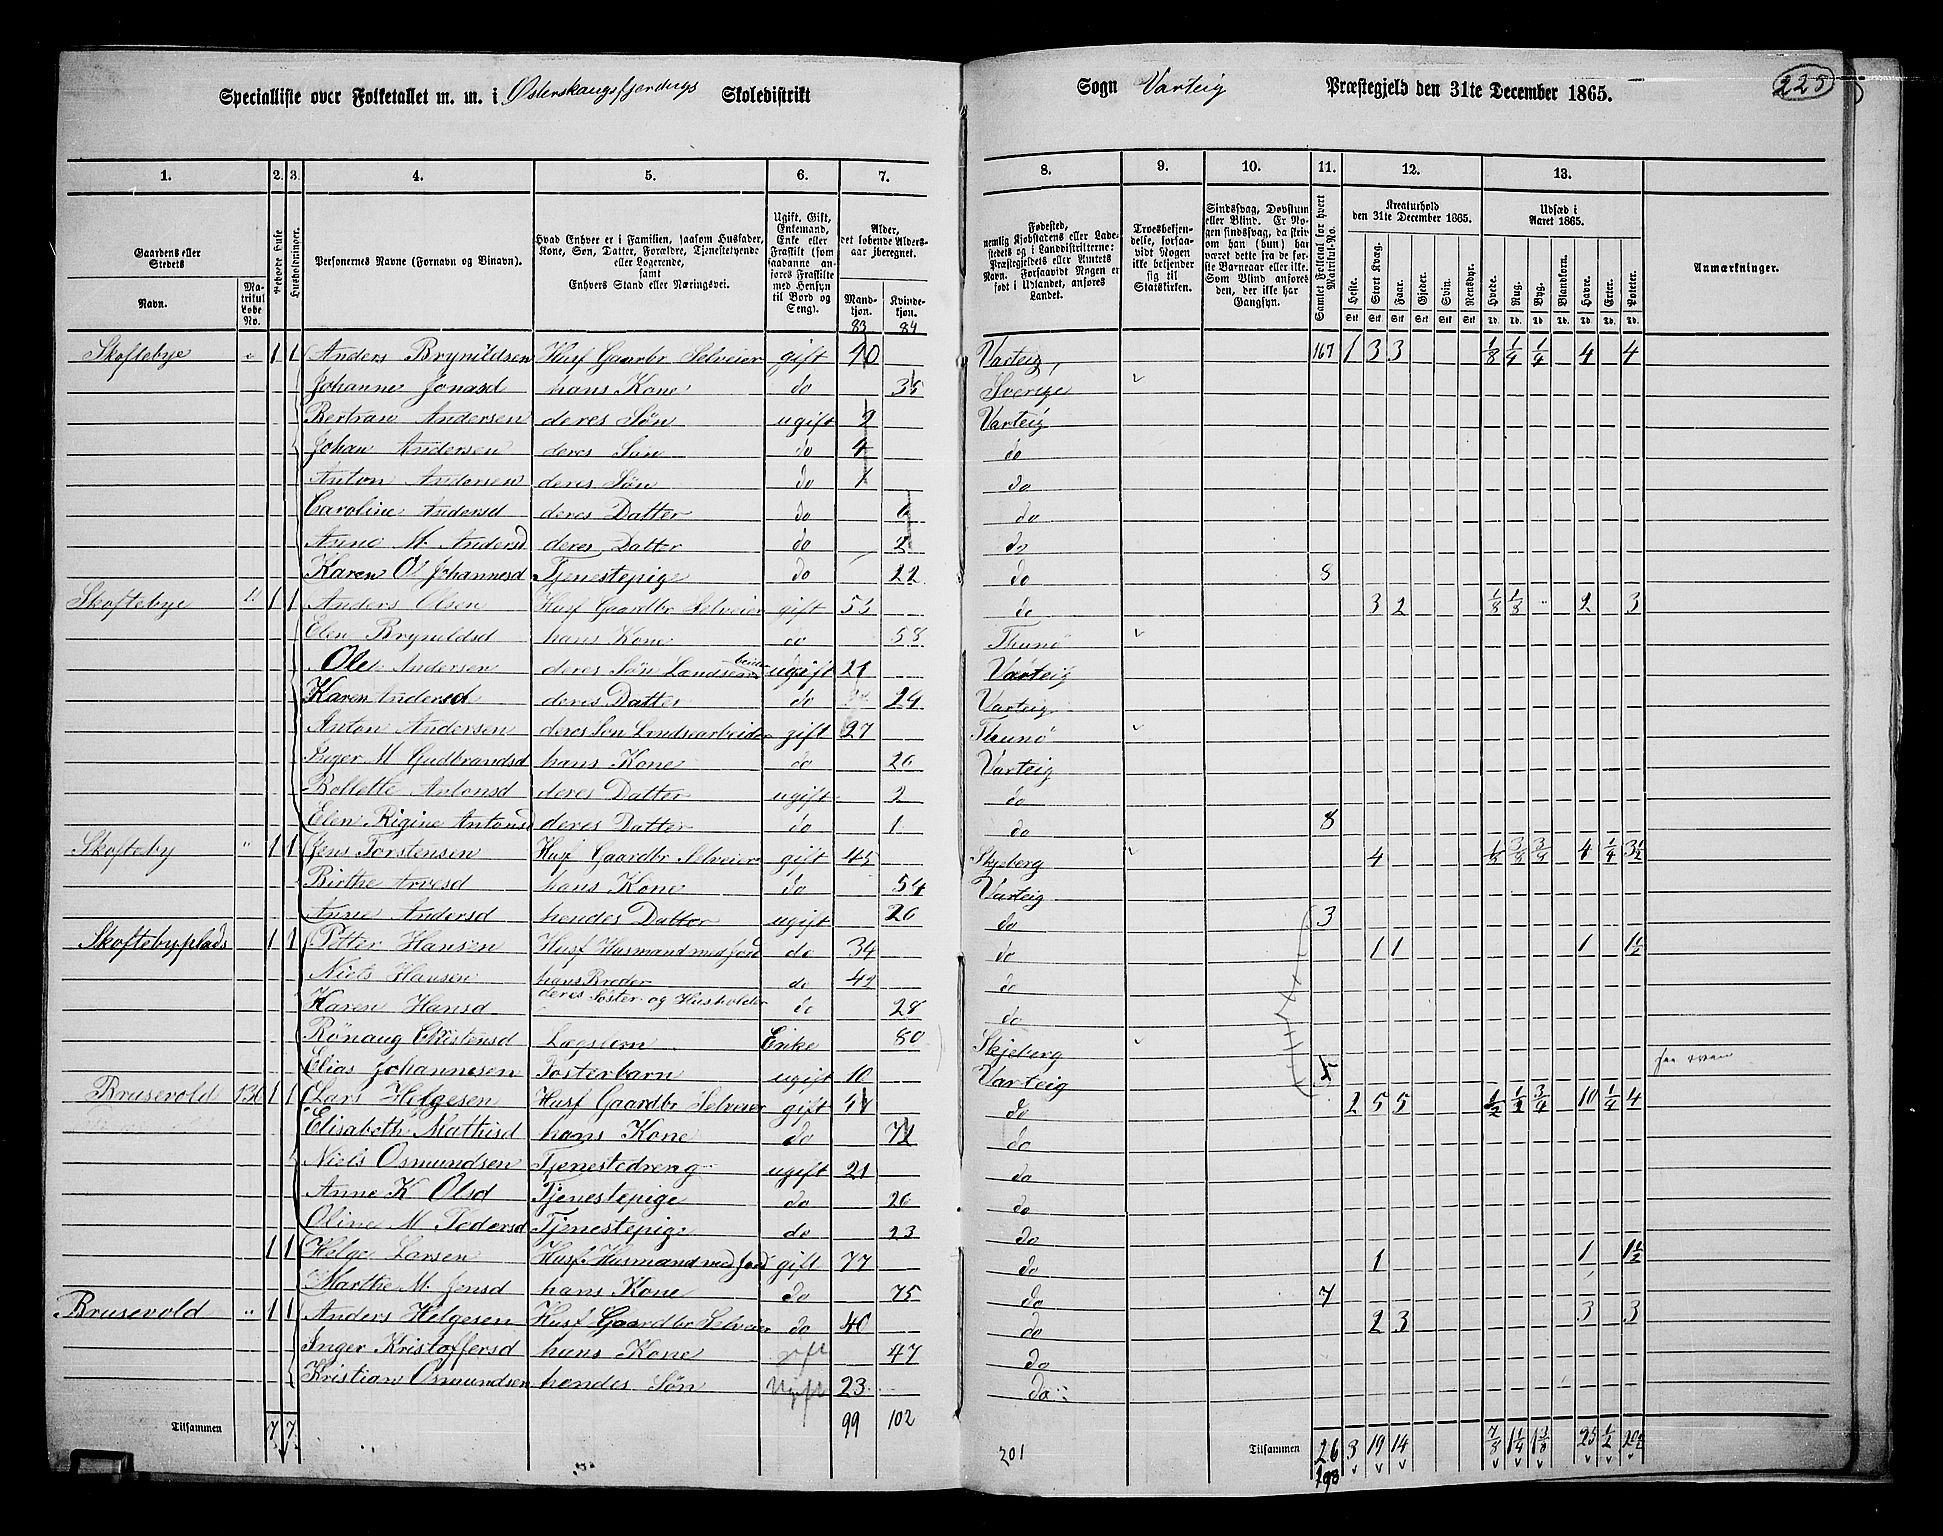 Specialliste over Folketallet m. m. i Østerskaugsfjerdings Skoledistrikt Sogn Varteig Præstegjeld den 31te December 1865. 225
1. 2. 3. 4. 5. 6. 7. 8. 9. 10. 11. 12. 13.
Gaardens eller Stedets
Navn. Matrikul Løbe No.
Beboede Huse
Husholdninger.
Personernes Navne (Fornavn og Tilnavn).
Hvad Enhver er i Familien, saasom Husfader, Kone, Søn, Datter, Forældre, Tjenestetyende eller Logerende, samt Enhvers Stand eller Næringsvei.
Ugift, Gift, Enkemand, Enke eller Fraskilt (som saadanne anføres Fraskilte med Hensyn til Bord og Seng).
Alder, det løbende Aldersaar iberegnet.
Mandkjøn. Kvindekjøn.
83 84
Fødested, nemlig Kjøbstadens eller Ladestedets og i Landdistrikterne: Præstegjeldets eller Amtets Navn. Forsaavidt Nogen er født i Udlandet, anføres Landet.
Troesbekjendelse, forsaavidt Nogen ikke bekjender sig til Statskirken.
Sindssvag, Døvstum eller Blind. Er Nogen sindssvag, da skrives om han (hun) har været dette fra de første Barneaar eller ikke. Som Blind anføres den, der ikke har Gangsyn.
Samlet Folketal for hvert Matrikul-No.
Kreaturhold den 31te December 1865.
Heste. Stort Kvæg. Faar. Gjeder. Svin. Rensdyr.
Udsæd i Aaret 1865.
Hvede. Rug. Byg. Blandkorn. Havre. Erter. Poteter.
Anmærkninger.
Skoftebye 1 1 Anders Brynildsen Husf Gaardbr Selveier gift 40 Varteig 167 1 3 3 1/8 1/4 1/4 4 4
Johanne Jonasd hans Kone do 35 Sverige
Bertran Andersen deres Søn ugift 2 Varteig
Johan Andersen deres Søn do 4 do
Anton Andersen deres Søn do 1 do
Caroline Andersd deres Datter do do
Anne M Andersd deres Datter do 2 do
Karen Ol Johannesd Tjenestepige do 22 do 8
Skoftebye 1 1 Anders Olsen Husf Gaardbr Selveier gift 53 do 3 2 1/8 1/8 2 3
Elen Brynildsd hans Kone do 58 Thunø
Ole Andersen deres Søn Landsarbeider ugift 21 Varteig
Karen Andersd deres Datter do 24 Varteig
Anton Andersen deres Søn Landsarbeider gift 27 Thunø
Inger M Gudbrandsd hans Kone do 20 Varteig
Bollette Antonsd deres Datter ugift 2 do
Elen Rigine Antonsd deres Datter do 1 do 8
Skofteby " 1 1 Jens Torstensen Husf Gaardbr Selveier gift 45 Skjeberg 4 1/8 3/8 3/8 4 1/4 3 1/2
Birthe Arvesd hans Kone do 54 Varteig
Anne Andersd hendes Datter ugift 20 do 3
Skoftebyplads 1 1 Petter Hansen Husf Husmand med Jord do 34 do 1 1 1 1 1/2
Niels Hansen hans Broder do do
Karen Hansd deres Søster og Husholder do 28 do
Rønaug Christensd Lægslem Enke 80 Skjeberg
Elias Johannesen Fosterbarn ugift 10 Varteig
Brusevold 130 1 1 Lars Helgesen Husf Gaardbr Selveier gift do 2 5 5 1/2 1/2 3/4 10 1/4 4
Elisabeth Mathisd hans Kone do do
Niels Osmundsen Tjenestedreng ugift 21 do
Anne K Olsd Tjenestepige do 20 do
Oline M Pedersd Tjenestepige do 23 do
1 1 Helge Larsen Husf Husmand med Jord gift 77 do 1 1 1 1/2
Marthe M Jensd hans Kone do 75 do 7
Brusevold " 1 1 Anders Helgesen Husf Gaardbr Selveier do 40 do 2 3 3 3
Inger Kristoffersd hans Kone gift 47 do
Kristian Osmundsen hendes Søn Ugift 23 do
Tilsammen 7 7 99 102 201 Tilsammen 26 3 19 14 7/8 1 1/4 1 3/8 25 1/2 20 1/2